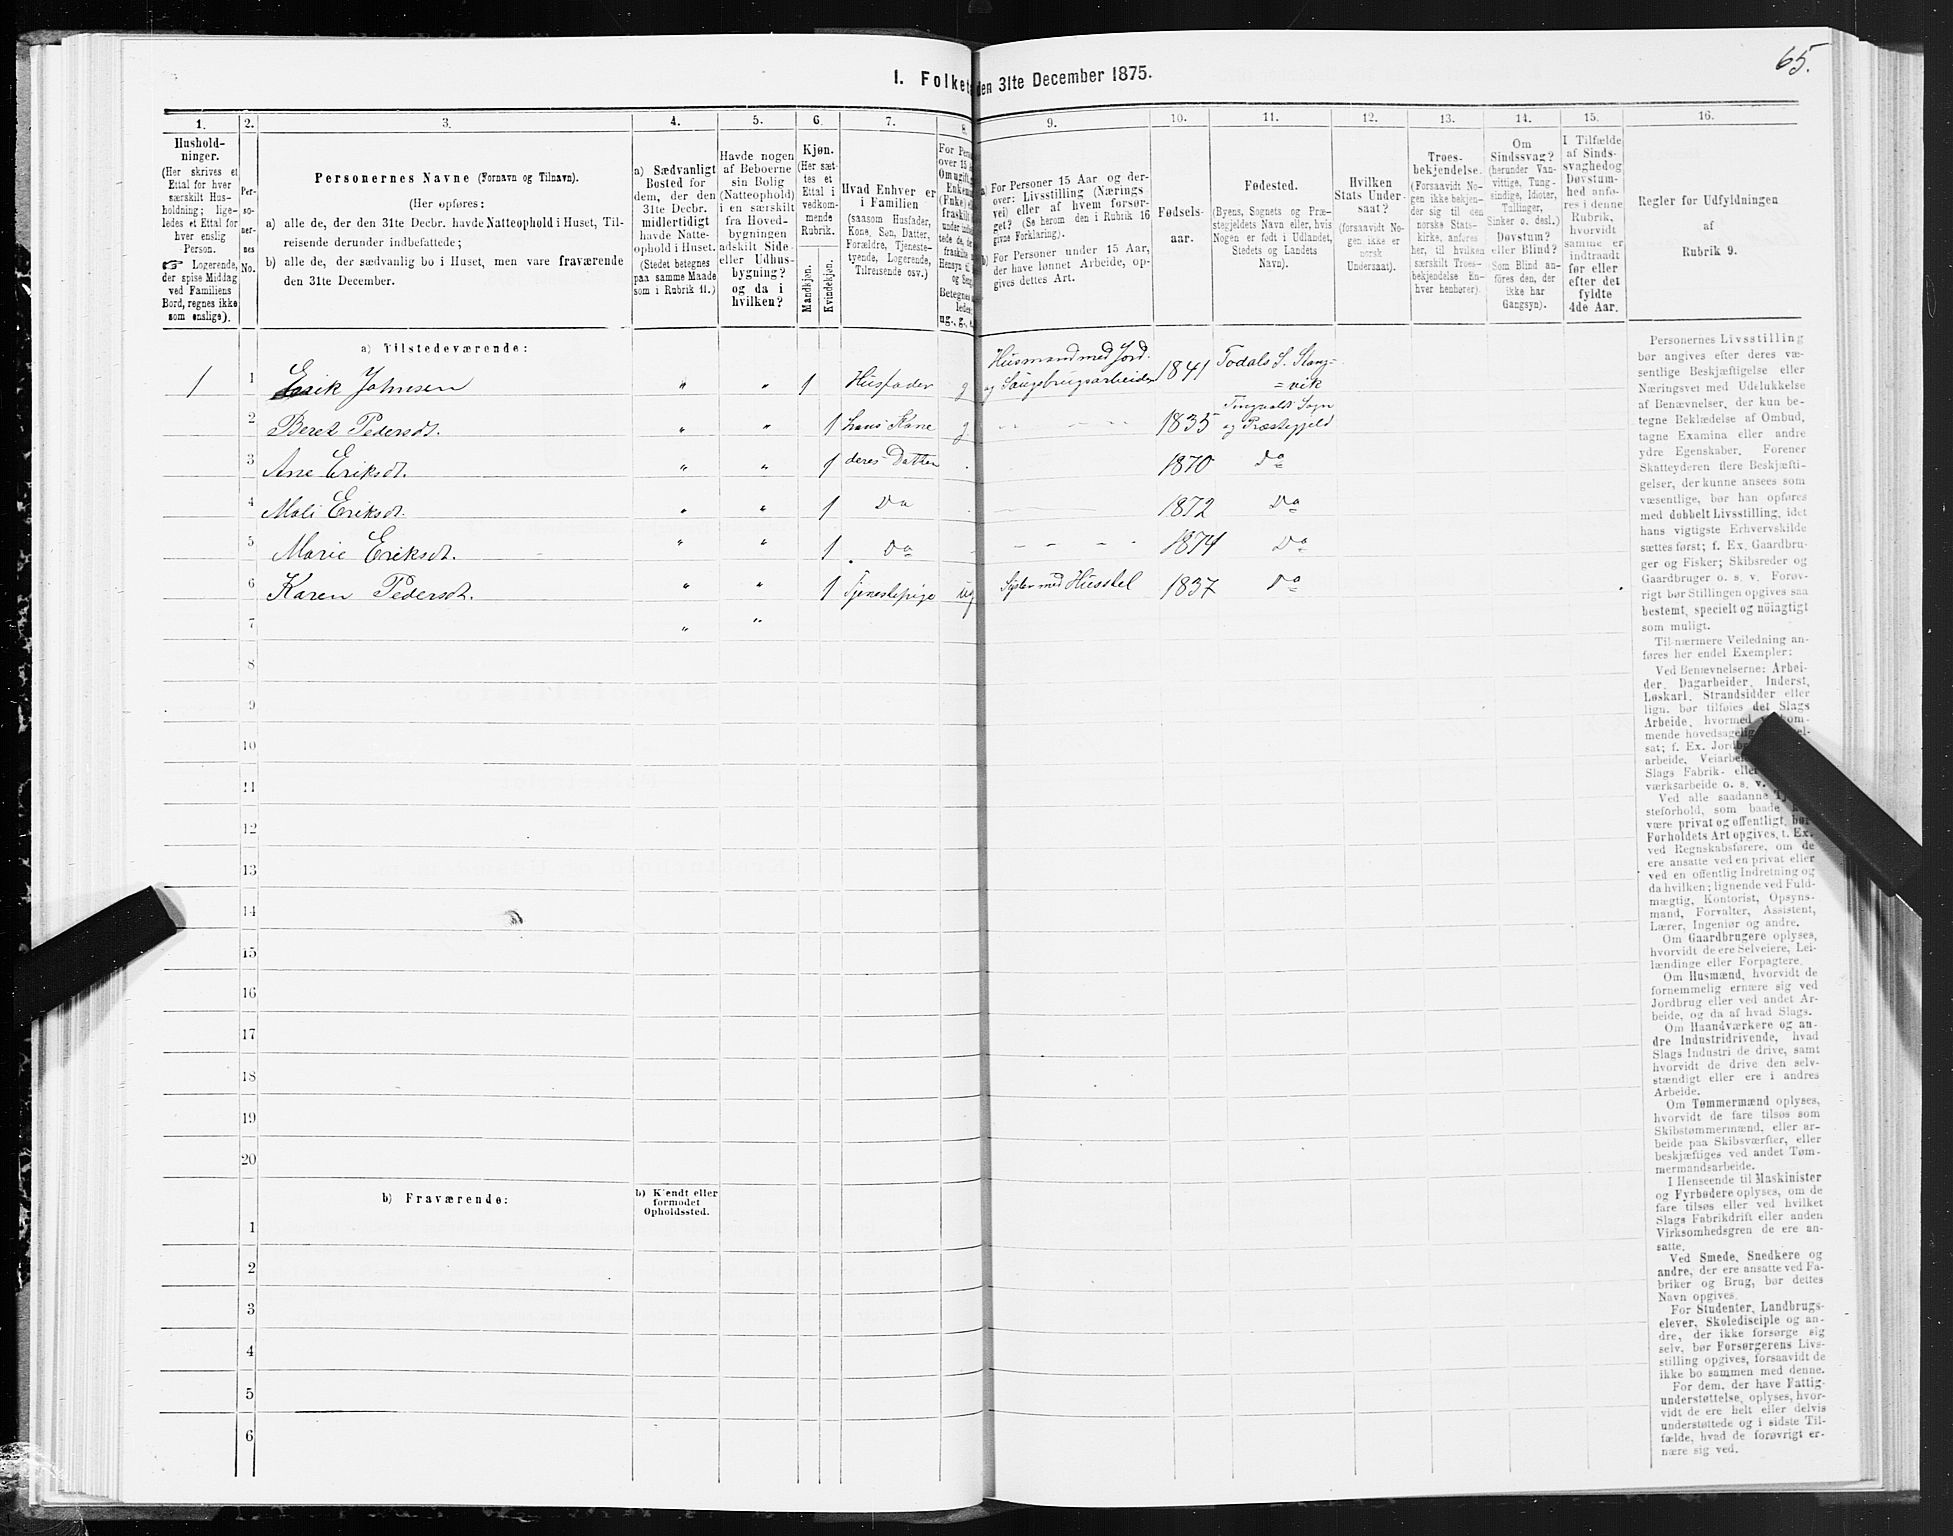 65.
I. Folket
den 31te December 1875.
1.
2.
3.
4.
5.
6.
7.
8.
9.
10.
11.
12.
13.
14.
15.
16.
Hushold-
ninger.
(Her skrives et
Ettal for hver
særskilt Hus-
holdning; lige-
ledes et Ettal for
hver enslig
Person.
☞ Logerende,
der spise Middag
ved Familiens
Bord, regnes ikke
som enslige).
Per-
so-
ner-
nes
No.
Personernes Navne (Fornavn og Tilnavn).
(Her opføres:
a) alle de, der den 31te Decbr. havde Natteophold i Huset, Til-
reisende derunder indbefattede;
b) alle de, der sædvanlig bo i Huset, men vare fraværende
den 31te December.
a) Sædvanligt
Bosted for
dem, der den
31te Decbr.
midlertidigt
havde Natte-
ophold i Huset.
(Stedet betegnes
paa samme Maade
som i Rubrik 11.)
Havde nogen
af Beboerne
sin Bolig
(Natteophold)
i en særskilt
fra Hoved-
bygningen
adskilt Side-
eller Udhus-
bygning?
og da i
hvilken?
Kjøn.
(Her sæt-
tes et
Ettal i
vedkom-
mende
Rubrik.
Mandkjøn.
Kvindekjøn.
Hvad Enhver er
i Familien
(saasom Husfader,
Kone, Søn, Datter,
Forældre, Tjeneste-
tyende, Logerende,
Tilreisende osv.)
For Perso
over 15
Om ugift,
Enkem
(Enke) e
fraskilt
under indb
tede de, d
fraskilte
Hensyn t
og Seng
Betegnes
ledes:
ug., g., e.
a) For Personer 15 Aar og der-
over: Livsstilling (Nærings
vei) eller af hvem forsør-
get? (Se herom den i Rubrik 16
givne Forklaring).
b) For Personer under 15 Aar,
der have lønnet Arbeide, op-
gives dettes Art.
Fødsels-
aar.
Fødested.
(Byens, Sognets og Præ-
stegjeldets Navn eller, hvis
Nogen er født i Udlandet,
Stedets og Landets
Navn).
Hvilken
Stats Under-
saat?
(forsaavidt No-
gen ikke er
norsk
Undersaat).
Troes-
bekjendelse.
(Forsaavidt No-
gen ikke bekjen-
der sig til den
norske Stats-
kirke, anføres
her, til hvilken
særskilt Troes-
bekjendelse En-
hver henhører).
Om
Sindssvag?
(herunder Van-
vittige, Tung-
sindige, Idioter,
Tullinger,
Sinker o. desl.)
Døvstum?
eller Blind?
(Som Blind an-
føres den, der
ikke har
Gangsyn).
I Tilfælde
af Sinds-
svaghedog
Døvstum-
hed anfø-
res i denne
Rubrik,
hvorvidt
samme er
indtraadt
før eller
efter det
fyldte
4de Aar.
Regler for Udfyldningen
af
Rubrik 9.
a) Tilstedeværende:
1 1 Erik Johnsen " " 1 Husfader g Husmand med Jord. og Saugbrugsarbeider 1841 Todals S. Stang=
=vik
2 Beret Pedersdt. " " 1 hans Kone g. 1835 Tingvold Sogn
og Præstegjeld
3 Ane Eriksdt. " " 1 deres Datter 1870 Do
4 Mali Eriksdt. " " 1 Do 1872 Do
5 Marie Eriksdt. " " 1 Do 1874 Do
6 Karen Pedersdt. " " 1 Tjenestepige ug Syster med Husstel 1837 Do
7 " "
8
9
10
11
12
13
14
15
16
17
18
19
20
b) Fraværende:
b) Kjendt eller
formodet
Opholdssted.
1
2
3
4
5
6
Personernes Livsstilling
bør angives efter deres væ-
sentlige Beskjæftigelse eller
Næringsvei med Udelukkelse
af Benævnelser, der kun be-
tegne Beklædelse af Ombud,
tagne Examina eller andre
ydre Egenskaber. Forener
Skatteyderen flere Beskjæfti-
gelser, der kunne ansees som
væsentlige, bør han opføres
med dobbelt Livsstilling, idet
hans vigtigste Erhvervskilde
sættes først; f. Ex. Gaardbru-
ger og Fisker; Skibsreder og
Gaardbruger o. s. v. Forøv-
rigt bør Stillingen opgives saa
bestemt, specielt og nöiagtigt
som muligt.
Til nærmere Veiledning an-
føres her endel Exempler:
Ved Benævnelserne: Arbei-
der, Dagarbeider, Inderst,
Løskarl, Strandsidder eller
lign. bør tilføies det Slags
Arbeide, hvormed vedkom-
mende hovedsagelig
sat; f. Ex. Jord
arbeide, Veiarbei
Slags Fabrik- eller
værksarbeide o. s. v.
Ved alle saadanne Tj
steforhold, som baade k
være privat og offentligt, bør
Forholdets Art opgives, t. Ex.
ved Regnskabsførere, om de
ere ansatte ved en privat eller
ved en offentlig Indretning og
da hvilken; lignende ved Fuld-
mægtig, Kontorist, Opsyns-
mand, Forvalter, Assistent,
Lærer, Ingeniør og andre.
Om Gaardbrugere oplyses,
hvorvidt de ere Selveiere, Lei-
lændinge eller Forpagtere.
Om Husmænd, hvorvidt de
fornemmelig ernære sig ved
Jordbrug eller ved andet Ar-
beide, og da af hvad Slags.
Om Haandværkere og an-
dre Industridrivende, hvad
Slags Industri de drive, samt
hvorvidt de drive den selv-
stændigt eller ere i andres
Arbeide.
Om Tømmermænd oplyses,
hvorvidt de fare tilsøs som
Skibstømmermænd, eller ar-
beide paa Skibsværfter, eller
beskjæftiges ved andet Tøm-
mermandsarbeide.
I Henseende til Maskinister
og Fyrbødere oplyses, om de
fare tilsøs eller ved hvilket
Slags Fabrikdrift eller anden
Virksomhedsgren de ere an-
satte.
Ved Smede, Snedkere og
andre, der ere ansatte ved Fa-
briker og Brug, bør dettes
Navn opgives.
For Studenter, Landbrugs-
elever, Skoledisciple og an-
dre, der ikke forsørge sig
selv, bør Forsørgerens Livs-
stilling opgives, forsaavidt de
ikke bo sammen med denne.
For dem, der have Fattig-
understøttelse, oplyses, hvor-
vidt de ere helt eller delvis
understøttede og i sidste Til-
fælde, hvad de forøvrigt er-
nære sig ved.